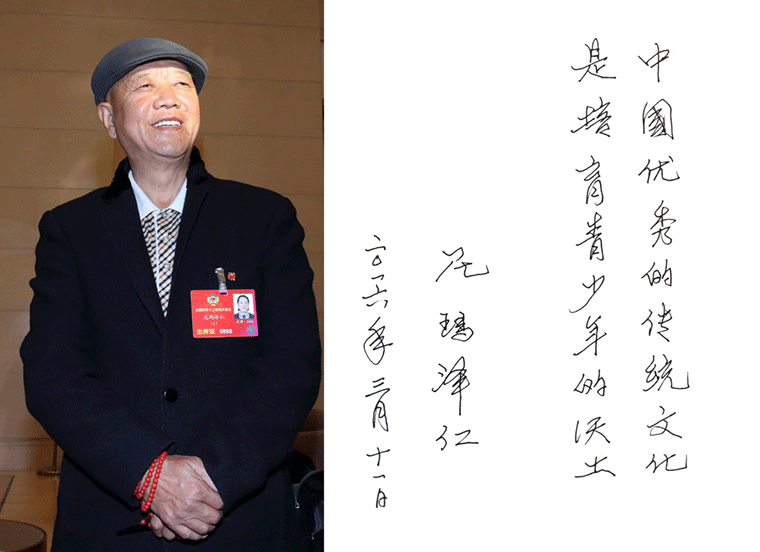 中國优秀的传统文化
是培育青少年的沃土
尼瑪泽仁
二〇一六年三月十一日
尼玛泽仁
出席证 0888